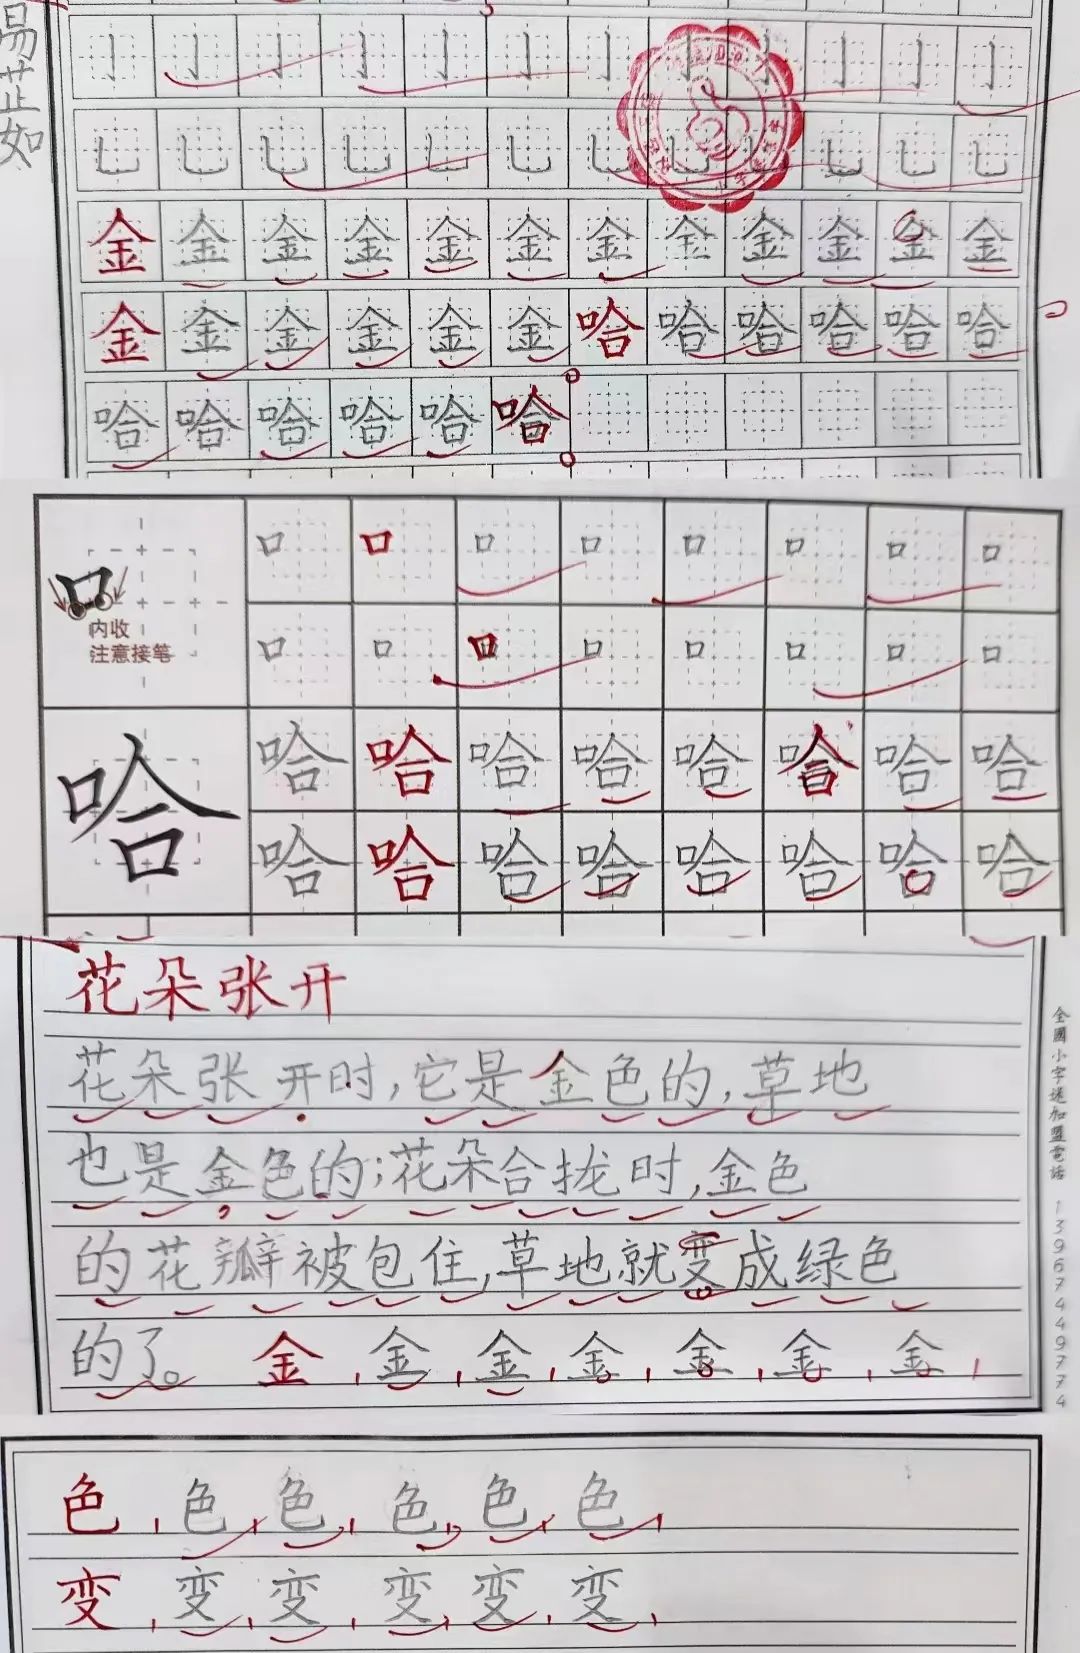 易芷如
亅 亅 亅 亅 亅 亅 亅 亅 亅 亅 亅 亅
乚 乚 乚 乚 乚 乚 乚 乚 乚 乚 乚 乚
金 金 金 金 金 金 金 金 金 金 金 金
金 金 金 金 金 金 哈 哈 哈 哈 哈 哈
哈 哈 哈 哈 哈 哈
口 口 口 口 口 口 口 口 口
内收
注意接笔
口 口 口 口 口 口 口 口
哈 哈 哈 哈 哈 哈 哈 哈 哈
哈 哈 哈 哈 哈 哈 哈 哈
花朵张开
花朵张开时,它是金色的,草地
也是金色的;花朵合拢时,金色
的花瓣被包住,草地就变成绿色
的了。 金 金 金 金 金 金 金
全國小字迷加盟電話 13967449774
色 色 色 色 色 色
变 变 变 变 变 变